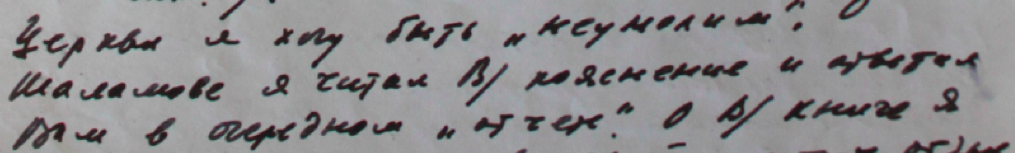 Церкви я хочу быть „неумолим“. О
Шаламове я читал В/ пояснение и ответил
Вам в очередном „отчете“. О В/ книге я